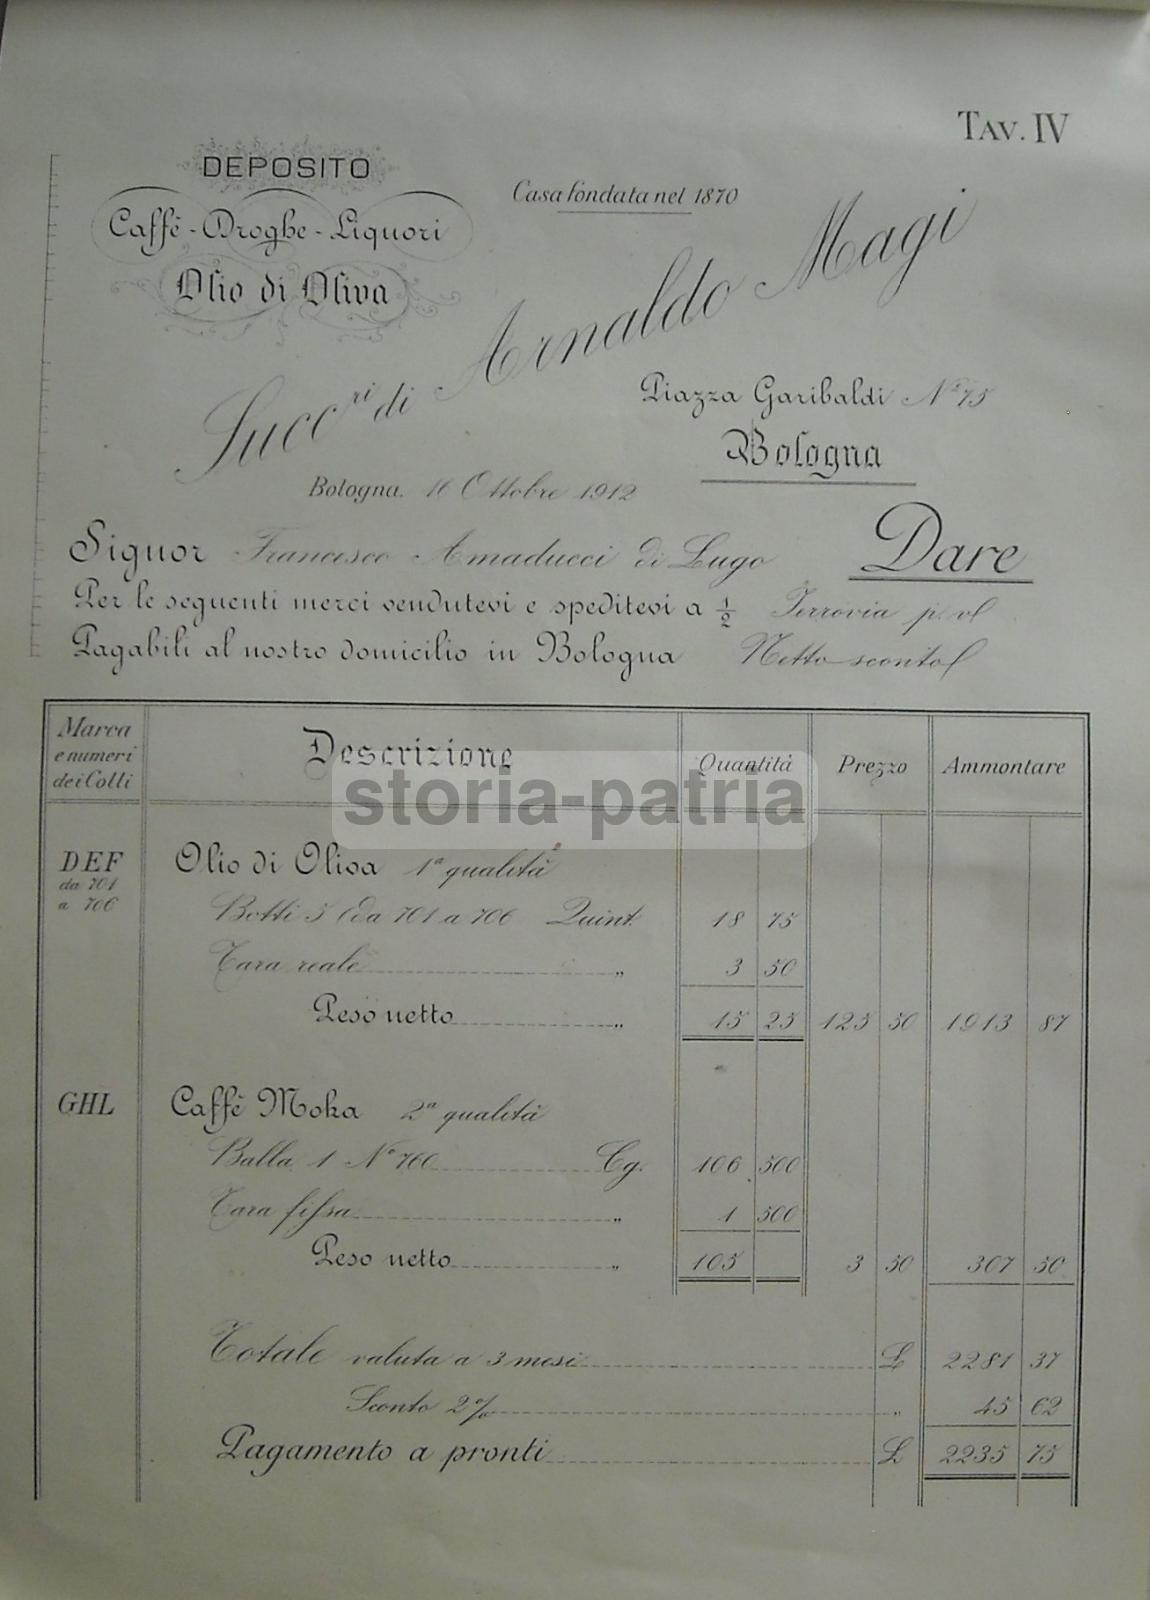 TAV. IV
DEPOSITO
Caffè - Droghe - Liquori
Olio di Oliva
Casa fondata nel 1870
Succ.ri di Arnaldo Magi
Piazza Garibaldi N.º 75
Bologna
Bologna. 16 Ottobre 1912
Signor Francesco Amaducci di Lugo Dare
Per le seguenti merci vendutevi e speditevi a ½ Ferrovia p. vl
Pagabili al nostro domicilio in Bologna Netto sconto
Marca e numeri dei Colli Descrizione Quantità Prezzo Ammontare
storia-patria
DEF Olio di Oliva 1ª qualità
da 701
a 706 Botti 5 (da 701 a 706 Quint. 18 75
Tara reale „ 3 50
Peso netto „ 15 25 125 50 1913 87
GHL Caffè Moka 2ª qualità
Balla 1 Nº 760 Cg. 106 500
Tara fissa „ 1 500
Peso netto „ 105 3 50 307 50
Totale valuta a 3 mesi L 2281 37
Sconto 2% „ 45 62
Pagamento a pronti L 2235 75